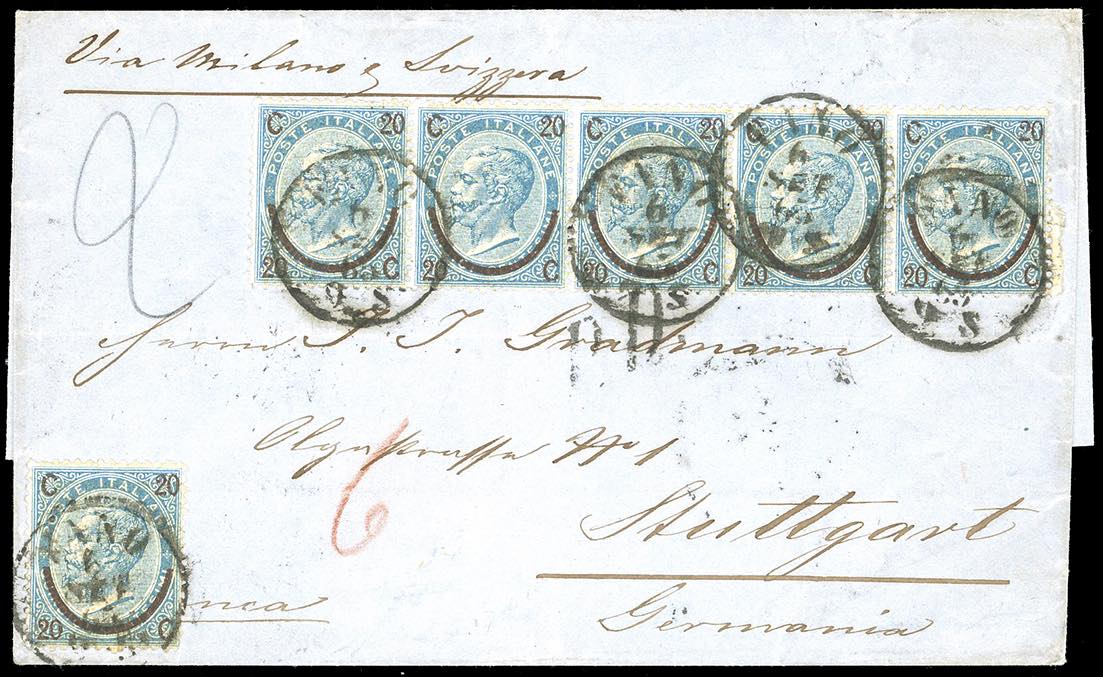 Via Milano e Svizzera
C 20
POSTE ITALIANE
20 C
C 20
POSTE ITALIANE
20 C
C 20
POSTE ITALIANE
20 C
C 20
POSTE ITALIANE
20 C
C 20
POSTE ITALIANE
20 C
6
SET
65
9 S
2
Herrn J. J. Gradmann
Olgastrasse No 1
6
Stuttgart
Germania
C 20
POSTE ITALIANE
20 C
6
SET
nca